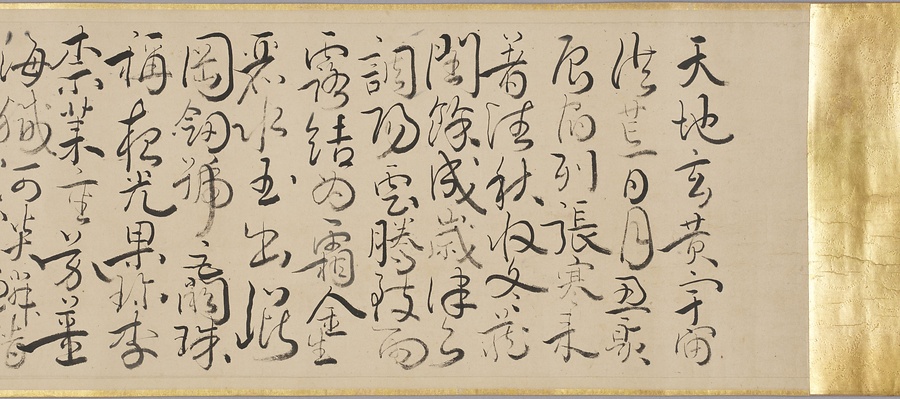 天地玄黄宇宙
洪荒日月盈昃
辰宿列張寒来
暑往秋收冬蔵
閏餘成歳律呂
調陽雲騰致雨
露結為霜金生
麗水玉出崐
岡劔號巨闕珠
稱夜光果珍李
柰菜重芥薑
海鹹河淡鱗潛